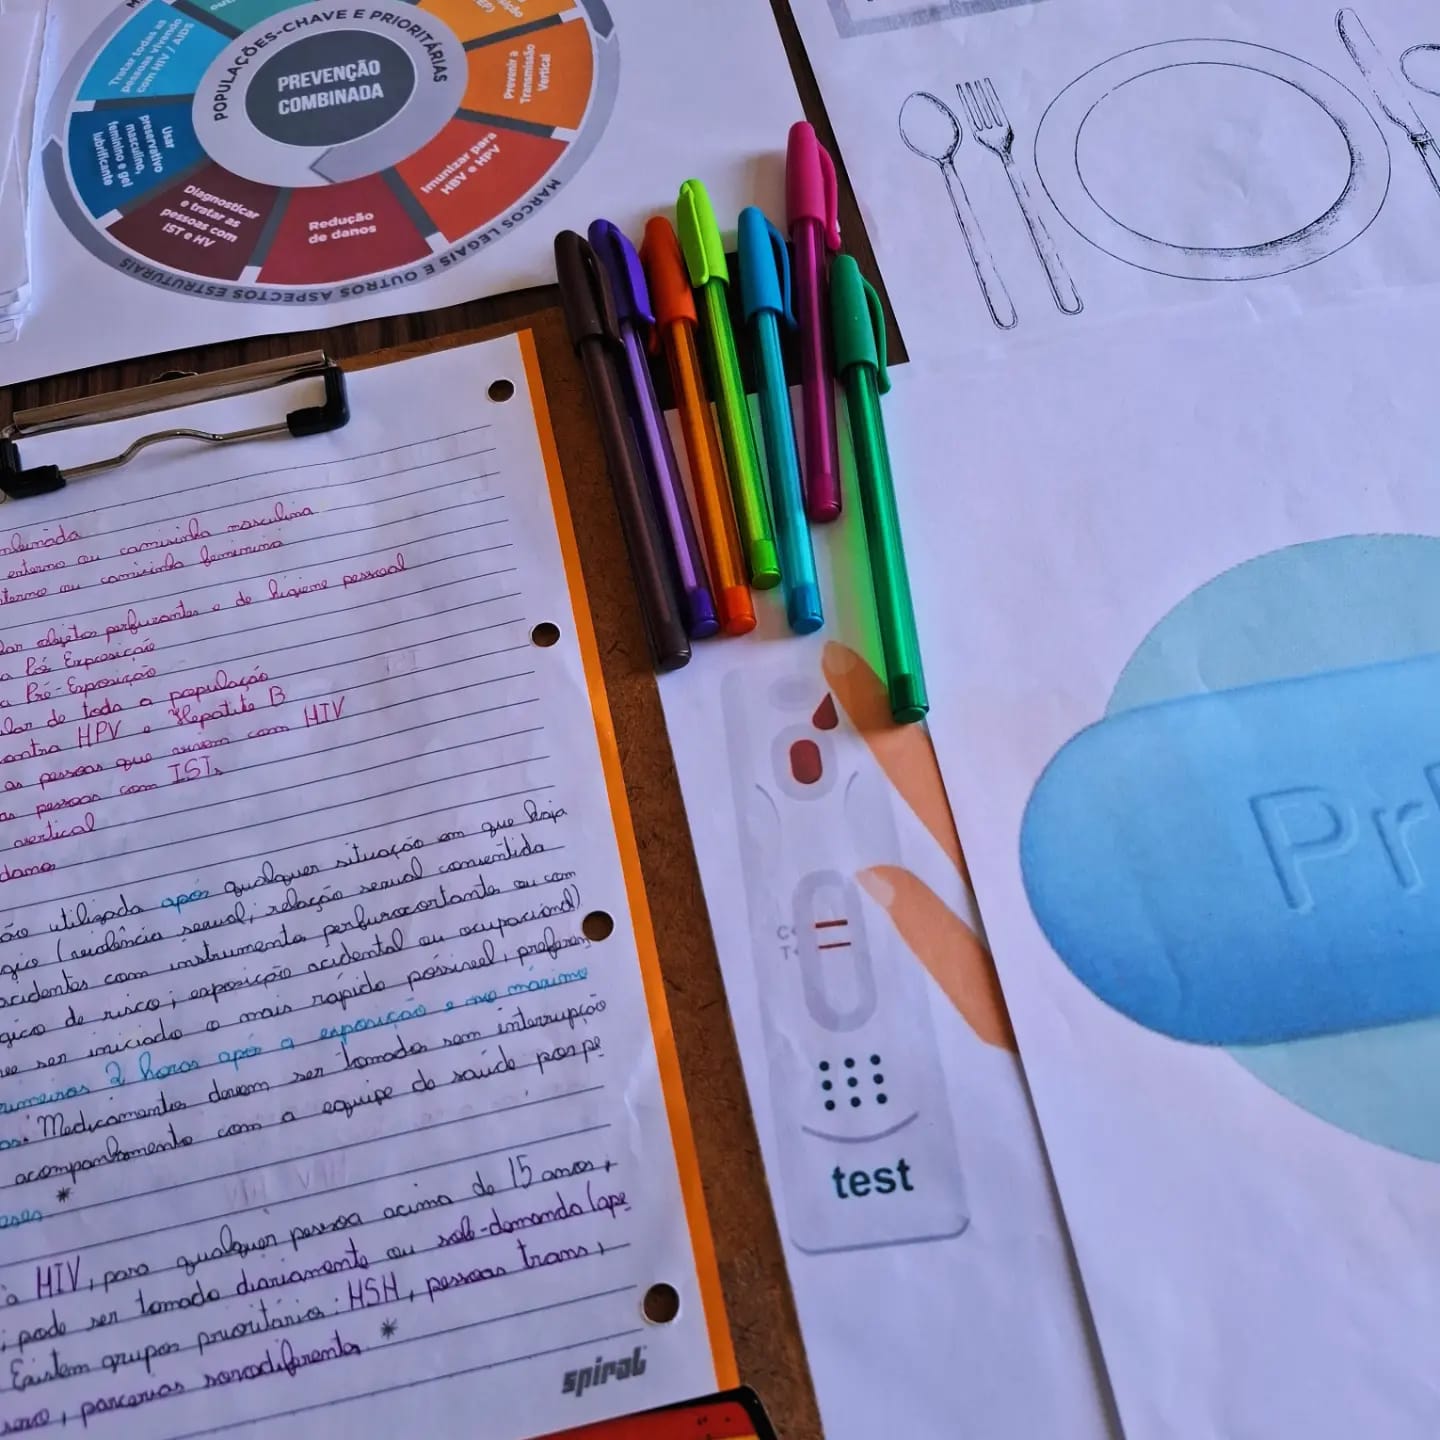 POPULAÇÕES-CHAVE E PRIORITÁRIAS
PREVENÇÃO
COMBINADA
Tratar todas as
pessoas vivendo
com HIV / AIDS
Usar
preservativo
masculino,
feminino e gel
lubrificante
Diagnosticar
e tratar as
pessoas com
IST e HV
Redução
de danos
Imunizar para
HBV e HPV
Prevenir a
Transmissão
Vertical
MARCOS LEGAIS E OUTROS ASPECTOS ESTRUTURAIS
externo ou camisinha masculina
ou camisinha feminina
objetos perfurantes e de higiene pessoal
Pós Exposição
a Pré-Exposição
de toda a população
contra HPV e Hepatite B
as pessoas que vivem com HIV
as pessoas com ISTs
vertical
utilizada após qualquer situação em que haja
(violência sexual; relação sexual consentida
acidentes com instrumentos perfurocortantes ou com
de risco; exposição acidental ou ocupacional)
ser iniciado o mais rápido possível, preferen
2 horas após a exposição e no máximo
Medicamentos devem ser tomados sem interrupção
acompanhamento com a equipe de saúde por pe
*
HIV, para qualquer pessoa acima de 15 anos,
; pode ser tomado diariamente ou sob-demanda (ape
Existem grupos prioritários: HSH, pessoas trans,
, parcerias sorodiferentes. *
spiral
C
T
test
Pr